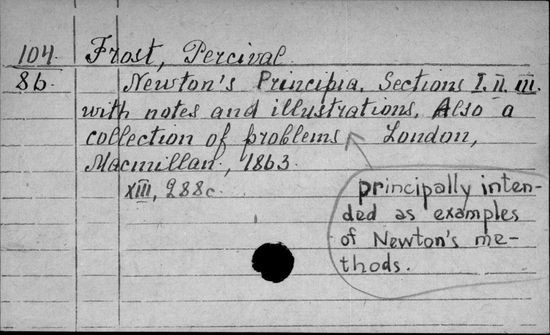 104 Frost, Percival
86 Newton's Principia. Sections I. II. III.
with notes and illustrations. Also a
collection of problems London,
Macmillan, 1863.
XIII, 288c.
principally inten-
ded as examples
of Newton's me-
thods.